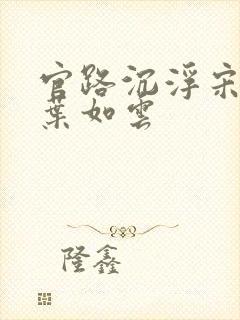 官路沉浮宋
葉如雲
隆鑫